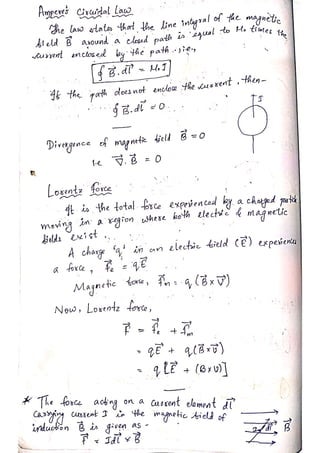 Ampere's Circuital Law
The law states that the line integral of the magnetic
field B⃗ around a closed path is equal to μ₀ times the
current enclosed by the path. i.e.,
∮ B⃗.dl⃗ = μ₀I
If the path does not enclose the current, then-
∮ B⃗.dl⃗ = 0
I
Divergence of magnetic field B⃗ = 0
i.e ∇⃗.B⃗ = 0
Lorentz force
It is the total force experienced by a charged particle
moving in a region where both electric & magnetic
fields exist.
A charge 'q' in an electric field (E⃗) experiences
a force, f⃗e = qE⃗
Magnetic force, f⃗m = q(B⃗×v⃗)
Now, Lorentz force,
F⃗ = f⃗e + f⃗m
= qE⃗ + q(B⃗×v⃗)
= q[E⃗ + (B×v)]
* The force acting on a current element dl⃗
carrying current I in the magnetic field of
induction B⃗ is given as -
F⃗ = Idl⃗ × B⃗
I dl⃗ B⃗